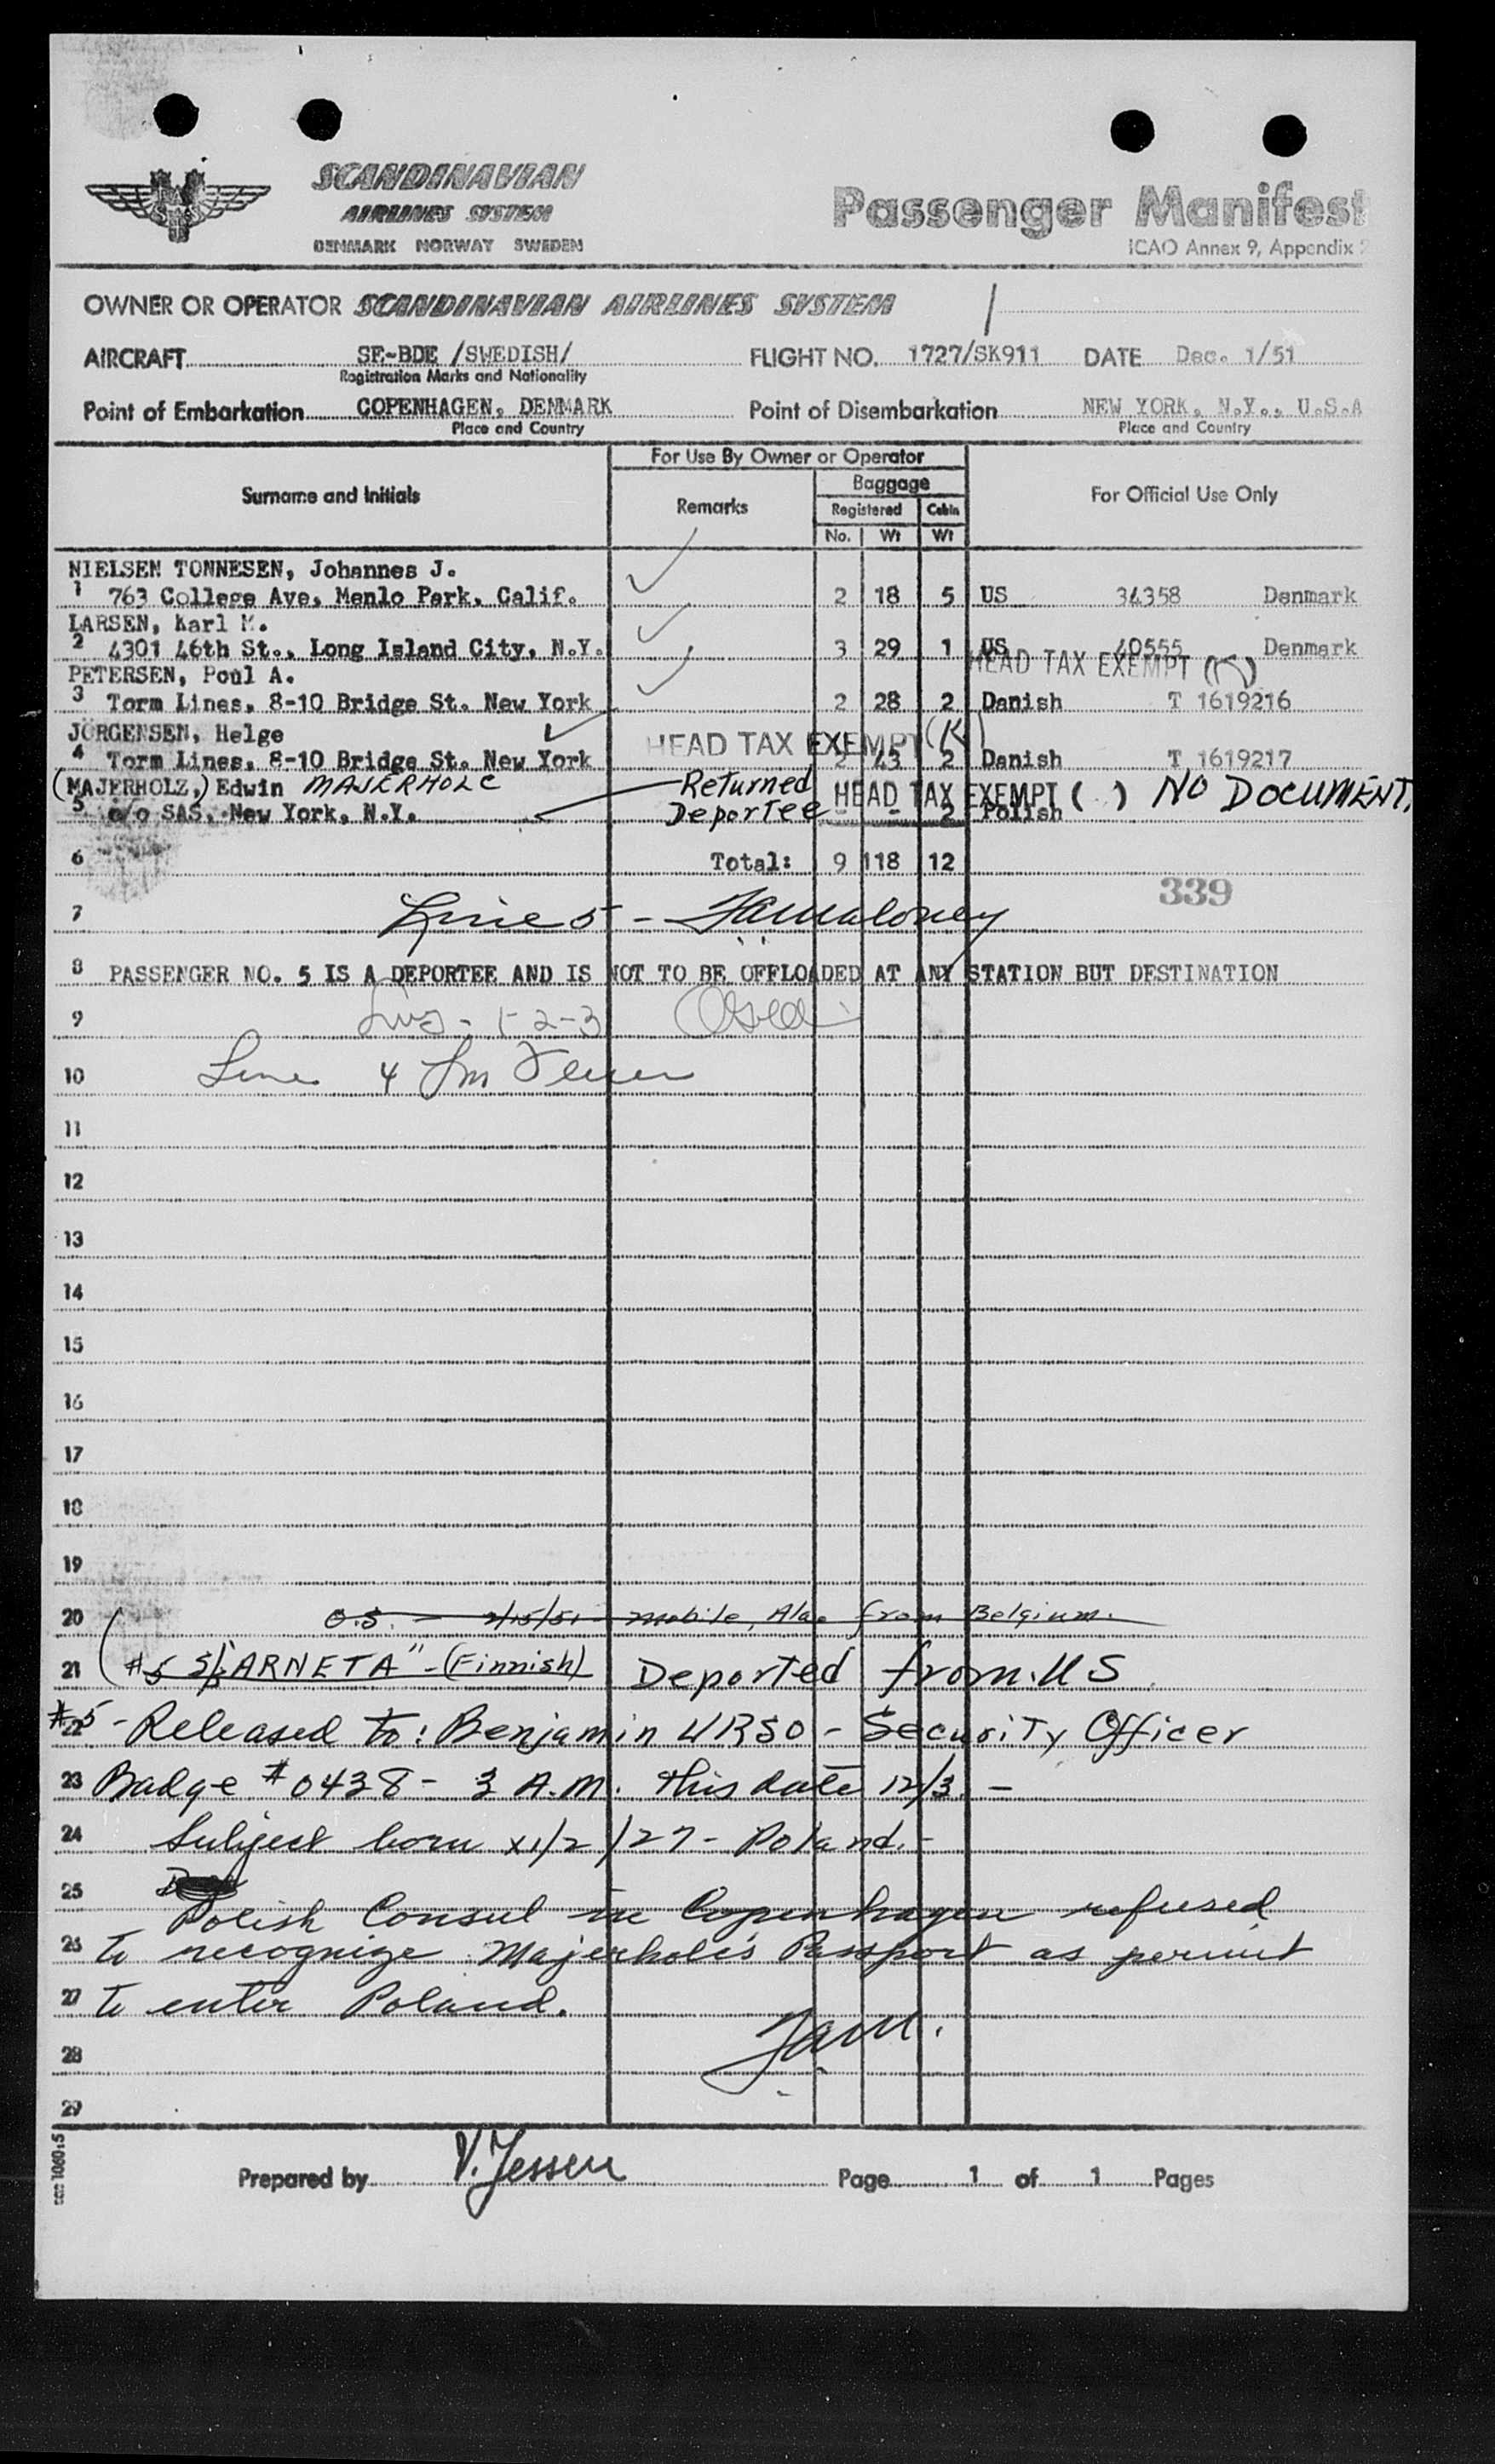 SCANDINAVIAN
AIRLINES SYSTEM
DENMARK NORWAY SWEDEN
Passenger Manifest
ICAO Annex 9, Appendix
OWNER OR OPERATOR SCANDINAVIAN AIRLINES SYSTEM
AIRCRAFT SE-BDE /SWEDISH/ FLIGHT NO. 1727/SK911 DATE Dec. 1/51
Registration Marks and Nationality
Point of Embarkation COPENHAGEN, DENMARK Point of Disembarkation NEW YORK, N.Y., U.S.A
Place and Country Place and Country
For Use By Owner or Operator
Surname and Initials Remarks Baggage For Official Use Only
Registered Cabin
No. Wt Wt
NIELSEN TONNESEN, Johannes J.
1 763 College Ave, Menlo Park, Calif. 2 18 5 US 34358 Denmark
LARSEN, Karl M.
2 4301 46th St., Long Island City, N.Y. 3 29 1 US 40555 Denmark
HEAD TAX EXEMPT (K)
PETERSEN, Poul A.
3 Torm Lines, 8-10 Bridge St. New York 2 28 2 Danish T 1619216
JÖRGENSEN, Helge HEAD TAX EXEMPT (K)
4 Torm Lines, 8-10 Bridge St. New York 2 43 2 Danish T 1619217
(MAJERHOLZ,) Edwin MAJERHOLC Returned HEAD TAX EXEMPT ( ) NO DOCUMENT.
5 c/o SAS, New York, N.Y. Deportee - - 2 Polish
6 Total: 9 118 12
339
7 Line 5 -
8 PASSENGER NO. 5 IS A DEPORTEE AND IS NOT TO BE OFFLOADED AT ANY STATION BUT DESTINATION
9 1-2-3
10 Line 4
11
12
13
14
15
16
17
18
19
20 O.S. - 2/15/51 - Mobile, Ala. from Belgium.
21 (#5 S/S "ARNETA" - (Finnish) Deported from U S
#5
22 - Released to: Benjamin URSO - Security Officer
23 Badge # 0438 - 3 A.M. this date 12/3. -
24 Subject born /27 - Poland. -
25 Polish Consul in Copenhagen refused
26 to recognize Majerholc's Passport as permit
27 to enter Poland.
28
29
Prepared by V. Jessen Page 1 of 1 Pages